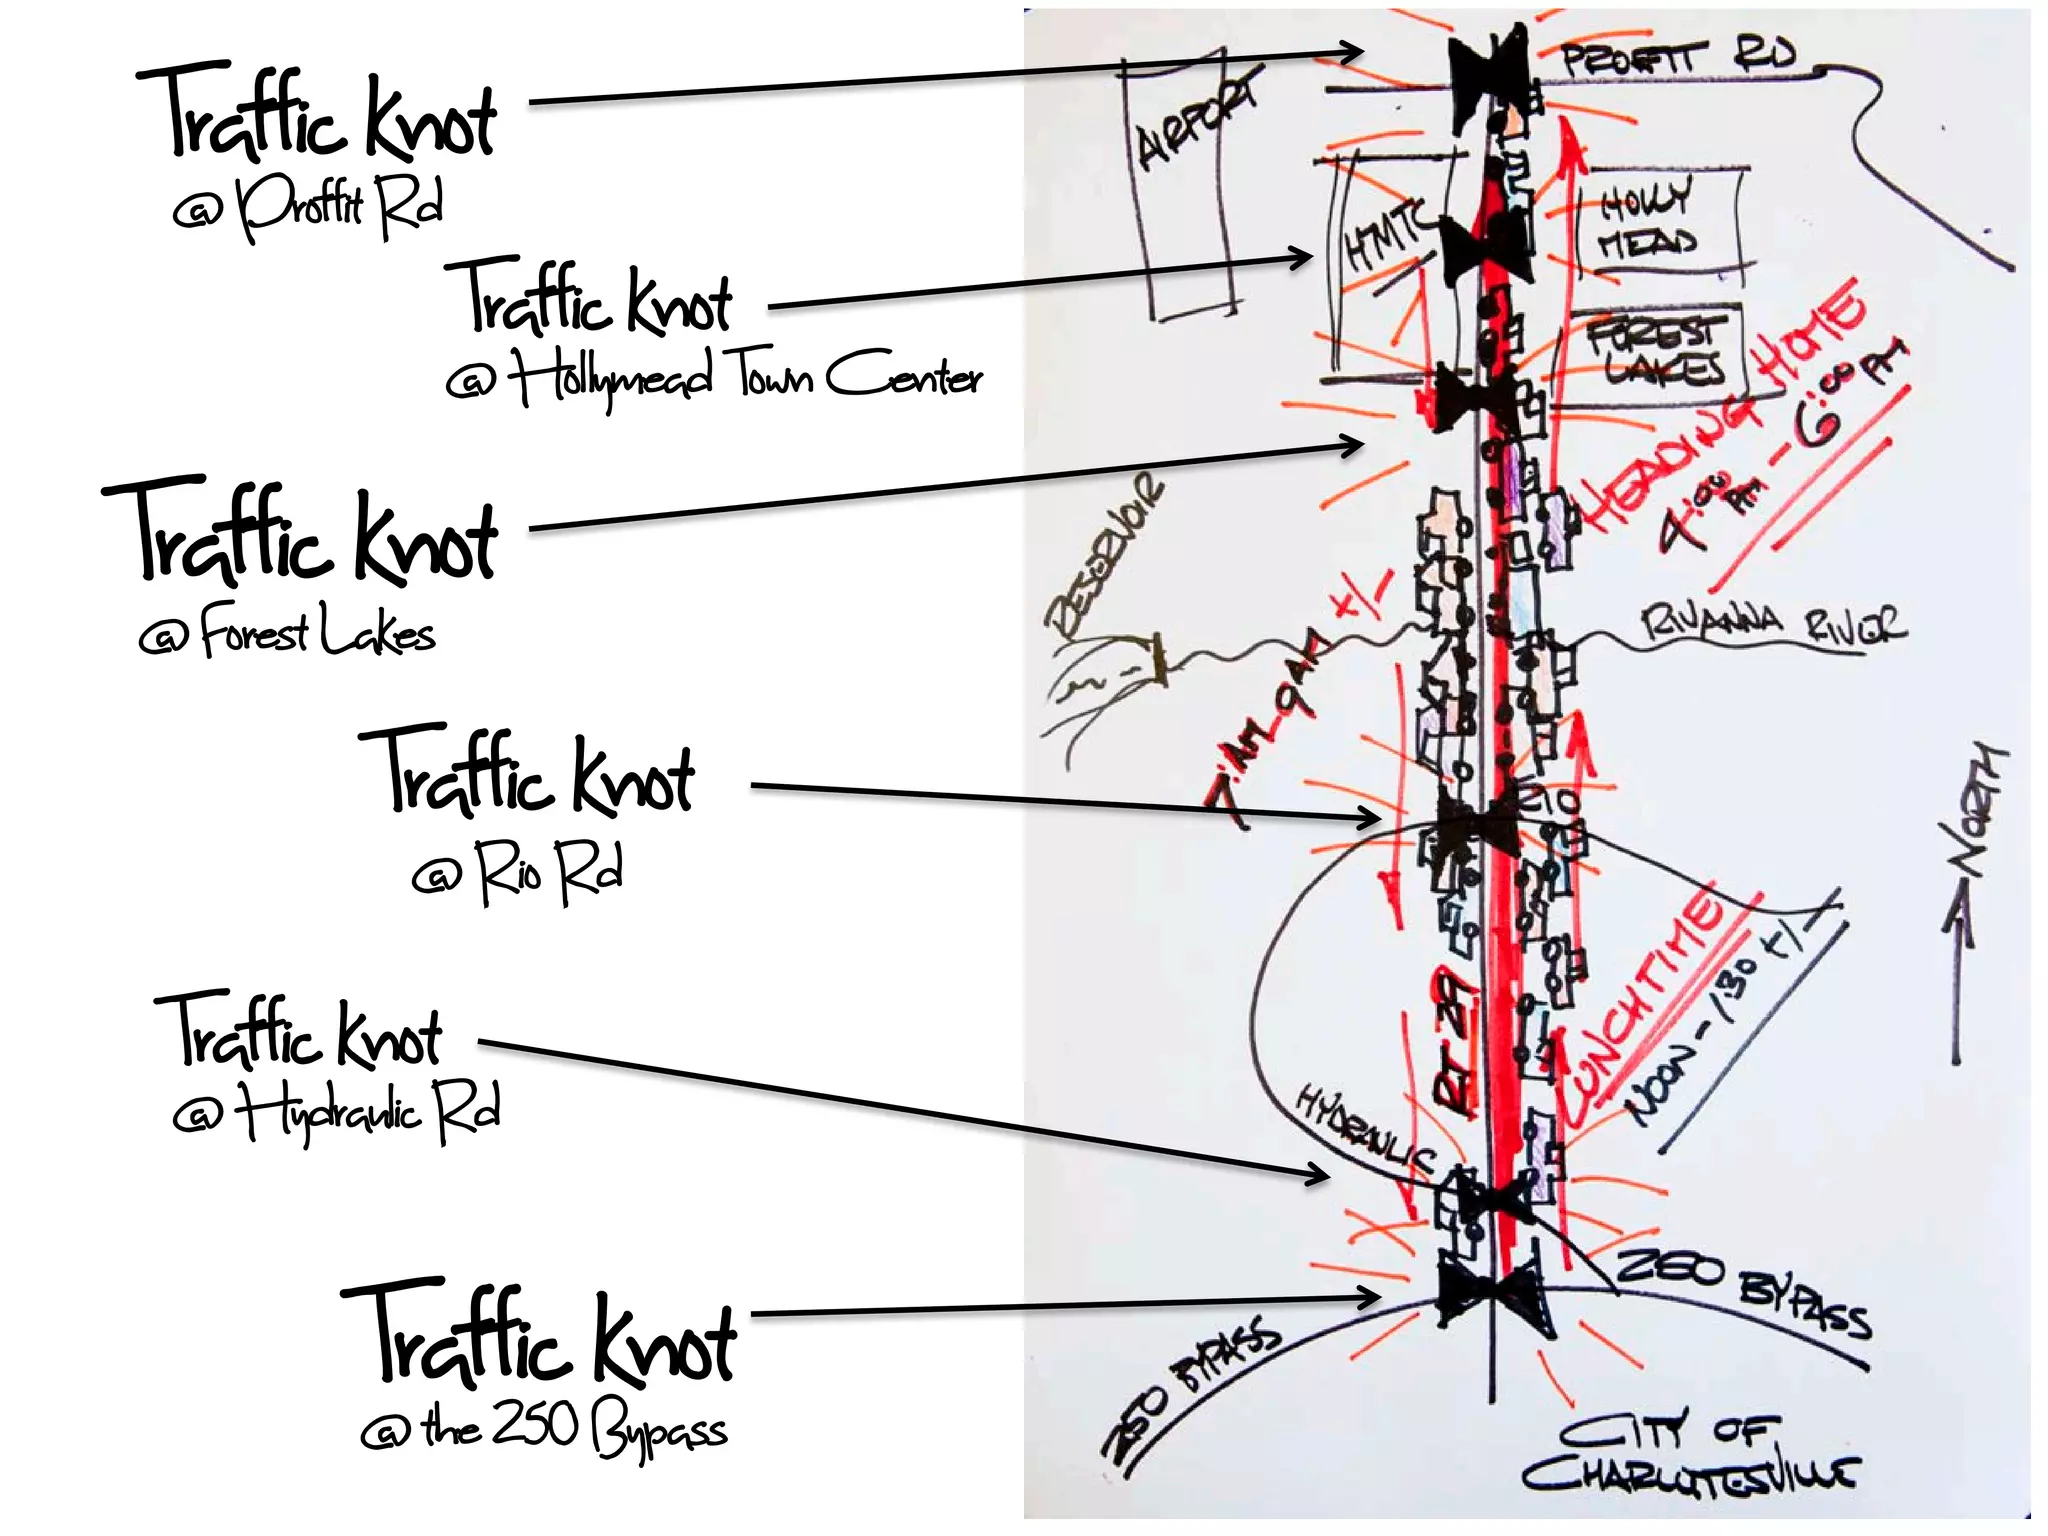 Traffic Knot
@ Proffit Rd
Traffic Knot
@ Hollymead Town Center
Traffic Knot
@ Forest Lakes
Traffic Knot
@ Rio Rd
Traffic Knot
@ Hydraulic Rd
Traffic Knot
@ the 250 Bypass
PROFITT RD
AIRPORT
HMTC
HOLLY
MEAD
FOREST
LAKES
HEADING HOME
4:00 PM - 6:00 PM
RESERVOIR
RIVANNA RIVER
7:AM - 9AM +/-
RIO
NORTH
LUNCHTIME
NOON - 130 +/-
RT 29
HYDRAULIC
250 BYPASS
250 BYPASS
CITY OF
CHARLOTTESVILLE